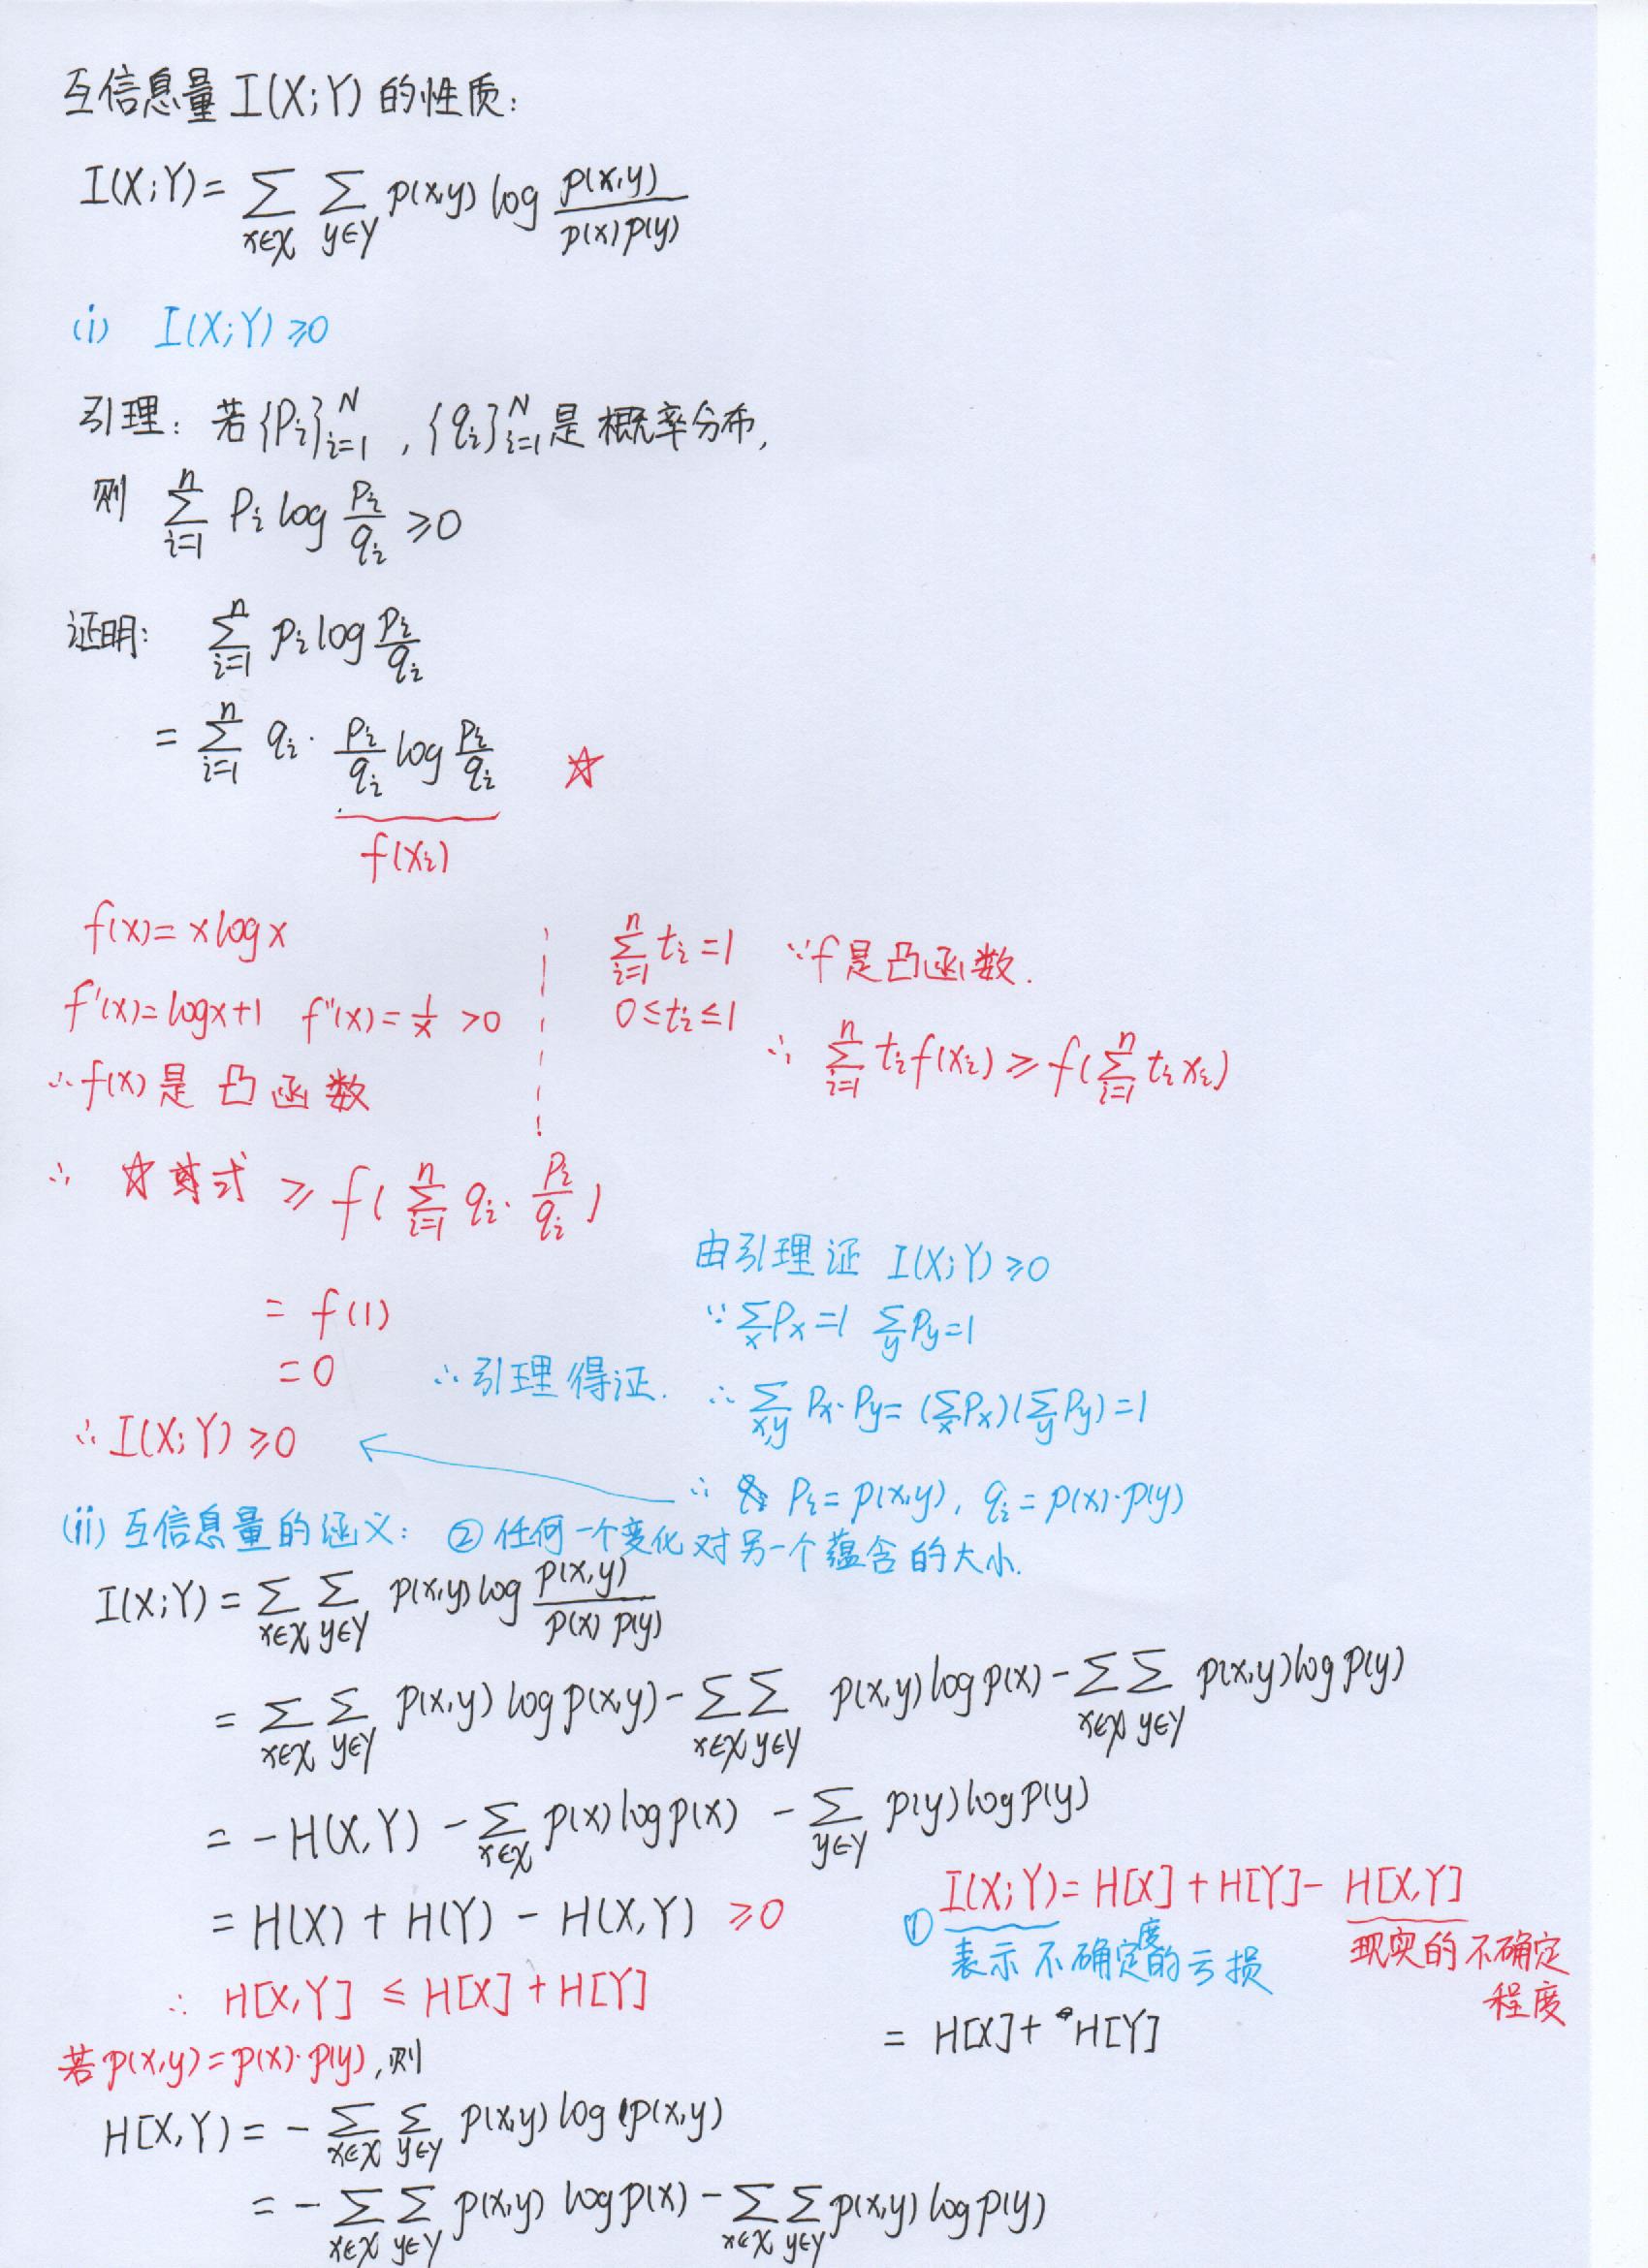 互信息量 I(X;Y) 的性质:
I(X;Y) = ∑_{x∈X} ∑_{y∈Y} p(x,y) log p(x,y)/p(x)p(y)
(i) I(X;Y) ≥ 0
引理: 若{Pi}_{i=1}^N, {qi}_{i=1}^N 是概率分布,
则 ∑_{i=1}^n Pi log Pi/qi ≥ 0
证明: ∑_{i=1}^n Pi log Pi/qi
= ∑_{i=1}^n qi · Pi/qi log Pi/qi ☆
f(xi)
f(x) = x log x
f'(x) = log x + 1 f''(x) = 1/x > 0
∴ f(x) 是凸函数
∑_{i=1}^n ti = 1
0 ≤ ti ≤ 1
∵ f 是凸函数.
∴ ∑_{i=1}^n ti f(xi) ≥ f(∑_{i=1}^n ti xi)
∴ ☆式 ≥ f(∑_{i=1}^n qi · Pi/qi)
= f(1)
= 0
∴ 引理得证.
由引理证 I(X;Y) ≥ 0
∵ ∑_x Px = 1 ∑_y Py = 1
∴ ∑_{x,y} Px·Py = (∑_x Px)(∑_y Py) = 1
∴ Pi = P(x,y), qi = P(x)·P(y)
∴ I(X;Y) ≥ 0
(ii) 互信息量的涵义: ②任何一个变化对另一个蕴含的大小.
I(X;Y) = ∑_{x∈X} ∑_{y∈Y} p(x,y) log p(x,y)/p(x)p(y)
= ∑_{x∈X} ∑_{y∈Y} p(x,y) log p(x,y) - ∑_{x∈X} ∑_{y∈Y} p(x,y) log p(x) - ∑_{x∈X} ∑_{y∈Y} p(x,y) log p(y)
= - H(X,Y) - ∑_{x∈X} p(x) log p(x) - ∑_{y∈Y} p(y) log p(y)
= H(X) + H(Y) - H(X,Y) ≥ 0
① I(X;Y) = H[X] + H[Y] - H[X,Y]
表示不确定度的亏损
现实的不确定
程度
∴ H[X,Y] ≤ H[X] + H[Y]
若 p(x,y) = p(x)·p(y), 则
H[X,Y] = - ∑_{x∈X} ∑_{y∈Y} p(x,y) log p(x,y)
= - ∑_{x∈X} ∑_{y∈Y} p(x,y) log p(x) - ∑_{x∈X} ∑_{y∈Y} p(x,y) log p(y)
= H[X] + H[Y]